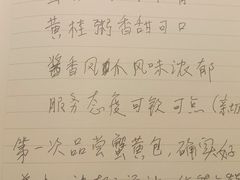 黄桂粥香甜可口
酱香凤爪风味浓郁
服务态度可欽可点(亲切
第一次品尝蟹黄包,确实好